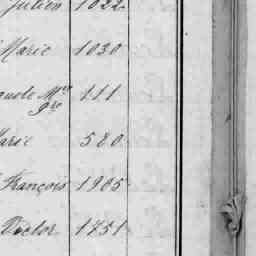 Julien 1022
Marie 1030
111
Marie 580
François 1905
Victor 1751